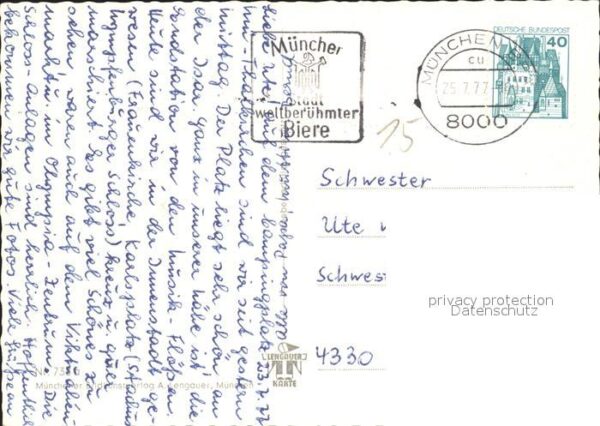 23.7.77
Liebe Ute! Auf dem Campingplatz
München-Thalkirchen sind wir seit gestern
mittag. Der Platz liegt sehr schön an
der Isar, ganz in unserer Nähe ist die
Endstation von den Musik-Flößen.
Heute sind wir in der Innenstadt ge-
wesen (Frauenkirche, Karlsplatz (Stachus
Nymphenburger Schloss) kreuz u. quer
marschiert. Es gibt viel Schönes zu
sehen, waren auch auf dem Viktualien-
markt u. im Olympia-Zentrum. Die
Schloss-Anlagen sind herrlich. Hoffentlich
bekommen wir gute Fotos. Viele
Münchner
Stadt
weltberühmter
Biere
MÜNCHEN
cu
25.7.77
8000
DEUTSCHE BUNDESPOST
40
15
Schwester
Ute
Schwes
4330
privacy protection
Datenschutz
LENGAUER
KARTE
Nr. 733
Münchener Bildkunstverlag A. Lengauer, München